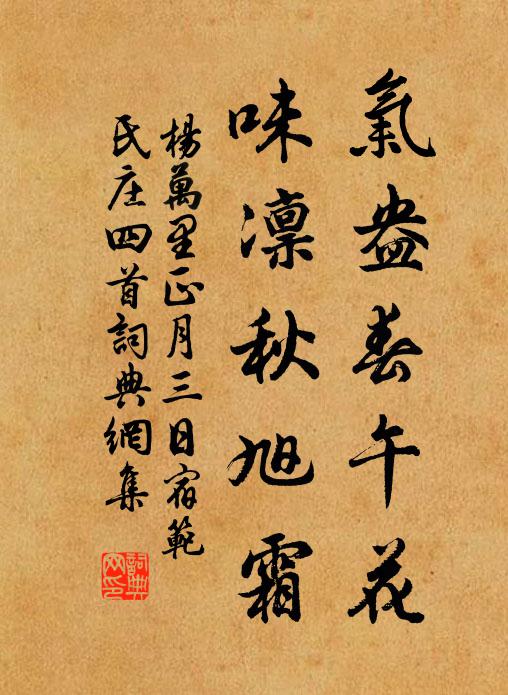 氣盎春午花
味凜秋旭霜
楊萬里正月三日宿範
氏庄四首詞典網集
詞典网印